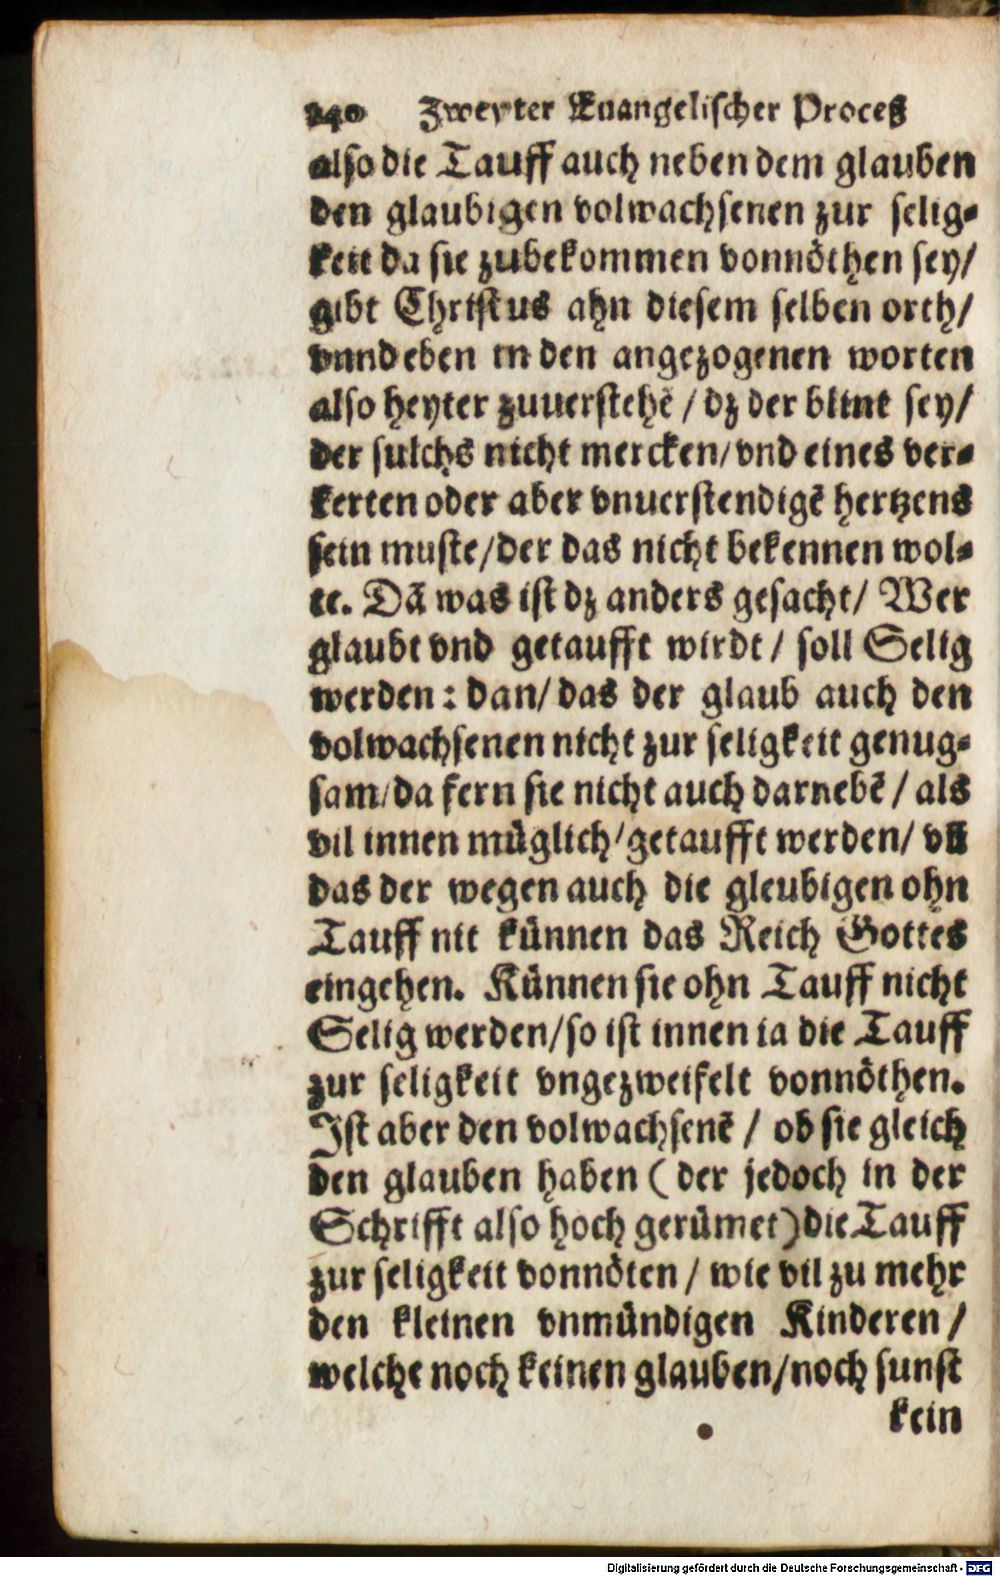 240 Zweyter Euangelischer Proceß
also die Tauff auch neben dem glauben
den glaubigen volwachsenen zur selig⸗
keit da sie zubekommen vonnöthen sey/
gibt Christus ahn diesem selben orth/
vnnd eben in den angezogenen worten
also heyter zuuerstehē / dz der blint sey/
der sulchs nicht mercken/vnd eines ver⸗
kerten oder aber vnuerstendigē hertzens
sein muste/der das nicht bekennen wol⸗
te. Dā was ist dz anders gesacht/ Wer
glaubt vnd getaufft wirdt / soll Selig
werden: dan/ das der glaub auch den
volwachsenen nicht zur seligkeit genug⸗
sam/da fern sie nicht auch darnebē / als
vil innen müglich/getaufft werden/ vñ
das der wegen auch die gleubigen ohn
Tauff nit künnen das Reich Gottes
eingehen. Künnen sie ohn Tauff nicht
Selig werden/so ist innen ia die Tauff
zur seligkeit vngezweifelt vonnöthen.
Ist aber den volwachsenē / ob sie gleich
den glauben haben (der jedoch in der
Schrifft also hoch gerümet) die Tauff
zur seligkeit vonnöten / wie vil zu mehr
den kleinen vnmündigen Kinderen/
welche noch keinen glauben/noch sunst
kein
Digitalisierung gefördert durch die Deutsche Forschungsgemeinschaft - DFG